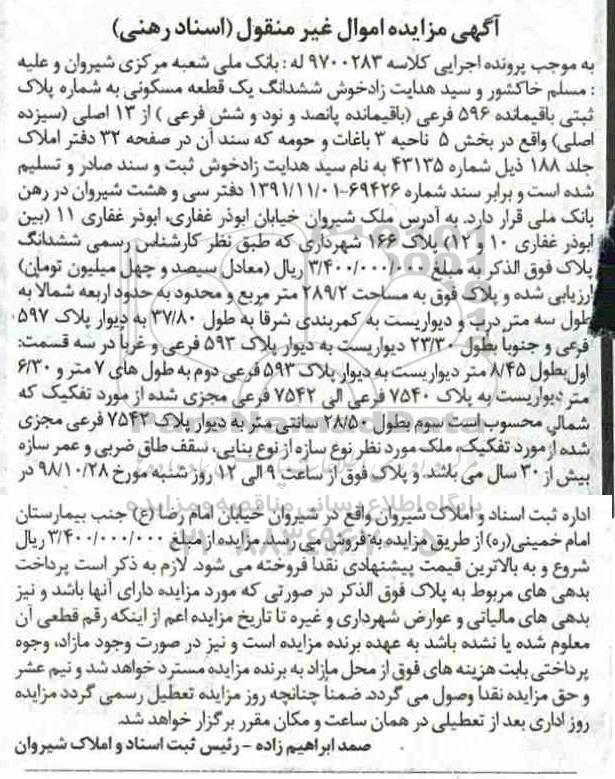 آگهی مزایده اموال غیر منقول (اسناد رهنی)
به موجب پرونده اجرایی کلاسه ۹۷۰۰۲۸۳ له : بانک ملی شعبه مرکزی شیروان و علیه
: مسلم خاکشور و سید هدایت زادخوش ششدانگ یک قطعه مسکونی به شماره پلاک
ثبتی باقیمانده ۵۹۶ فرعی (باقیمانده پانصد و نود و شش فرعی ) از ۱۳ اصلی (سیزده
اصلی) واقع در بخش ۵ ناحیه ۳ باغات و حومه که سند آن در صفحه ۳۲ دفتر املاک
جلد ۱۸۸ ذیل شماره ۴۳۱۳۵ به نام سید هدایت زادخوش ثبت و سند صادر و تسلیم
شده است و برابر سند شماره ۶۹۴۲۶-۱۳۹۱/۱۱/۰۱ دفتر سی و هشت شیروان در رهن
بانک ملی قرار دارد. به آدرس ملک شیروان خیابان ابوذر غفاری، ابوذر غفاری ۱۱ (بین
ابوذر غفاری ۱۰ و ۱۲) پلاک ۱۶۶ شهرداری که طبق نظر کارشناس رسمی ششدانگ
پلاک فوق الذکر به مبلغ ۳/۴۰۰/۰۰۰/۰۰۰ ریال (معادل سیصد و چهل میلیون تومان)
ارزیابی شده و پلاک فوق به مساحت ۲۸۹/۲ متر مربع و محدود به حدود اربعه شمالا به
طول سه متر درب و دیواریست به کمربندی شرقاً به طول ۳۷/۸۰ به دیوار پلاک ۵۹۷
فرعی و جنوبا بطول ۲۳/۳۰ دیواریست به دیوار پلاک ۵۹۳ فرعی و غرباً در سه قسمت:
اول بطول ۸/۴۵ متر دیواریست به دیوار پلاک ۵۹۳ فرعی دوم به طول های ۷ متر و ۶/۳۰
متر دیواریست به پلاک ۷۵۴۰ فرعی الی ۷۵۴۲ فرعی مجزی شده از مورد تفکیک که
شمالی محسوب است سوم بطول ۲۸/۵۰ سانتی متر به دیوار پلاک ۷۵۴۲ فرعی مجزی
شده از مورد تفکیک، ملک مورد نظر نوع سازه از نوع بنایی، سقف طاق ضربی و عمر سازه
بیش از ۳۰ سال می باشد. و پلاک فوق از ساعت ۹ الی ۱۲ روز شنبه مورخ ۹۸/۱۰/۲۸ در
پایگاه اطلاع رسانی مناقصه و مزایده
اداره ثبت اسناد و املاک شیروان واقع در شیروان خیابان امام رضا (ع) جنب بیمارستان
امام خمینی(ره) از طریق مزایده به فروش می رسد. مزایده از مبلغ ۳/۴۰۰/۰۰۰/۰۰۰ ریال
شروع و به بالاترین قیمت پیشنهادی نقدا فروخته می شود. لازم به ذکر است پرداخت
بدهی های مربوط به پلاک فوق الذکر در صورتی که مورد مزایده دارای آنها باشد و نیز
بدهی های مالیاتی و عوارض شهرداری و غیره تا تاریخ مزایده اعم از اینکه رقم قطعی آن
معلوم شده یا نشده باشد به عهده برنده مزایده است و نیز در صورت وجود مازاد، وجوه
پرداختی بابت هزینه های فوق از محل مازاد به برنده مزایده مسترد خواهد شد و نیم عشر
و حق مزایده نقداً وصول می گردد. ضمناً چنانچه روز مزایده تعطیل رسمی گردد مزایده
روز اداری بعد از تعطیلی در همان ساعت و مکان مقرر برگزار خواهد شد.
صمد ابراهیم زاده – رئیس ثبت اسناد و املاک شیروان